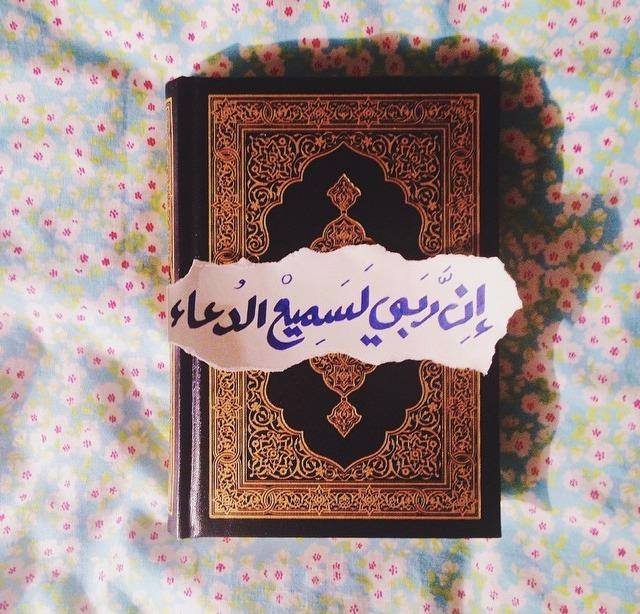 إِنَّ رَبي لَسَمِيْع الدُعاء